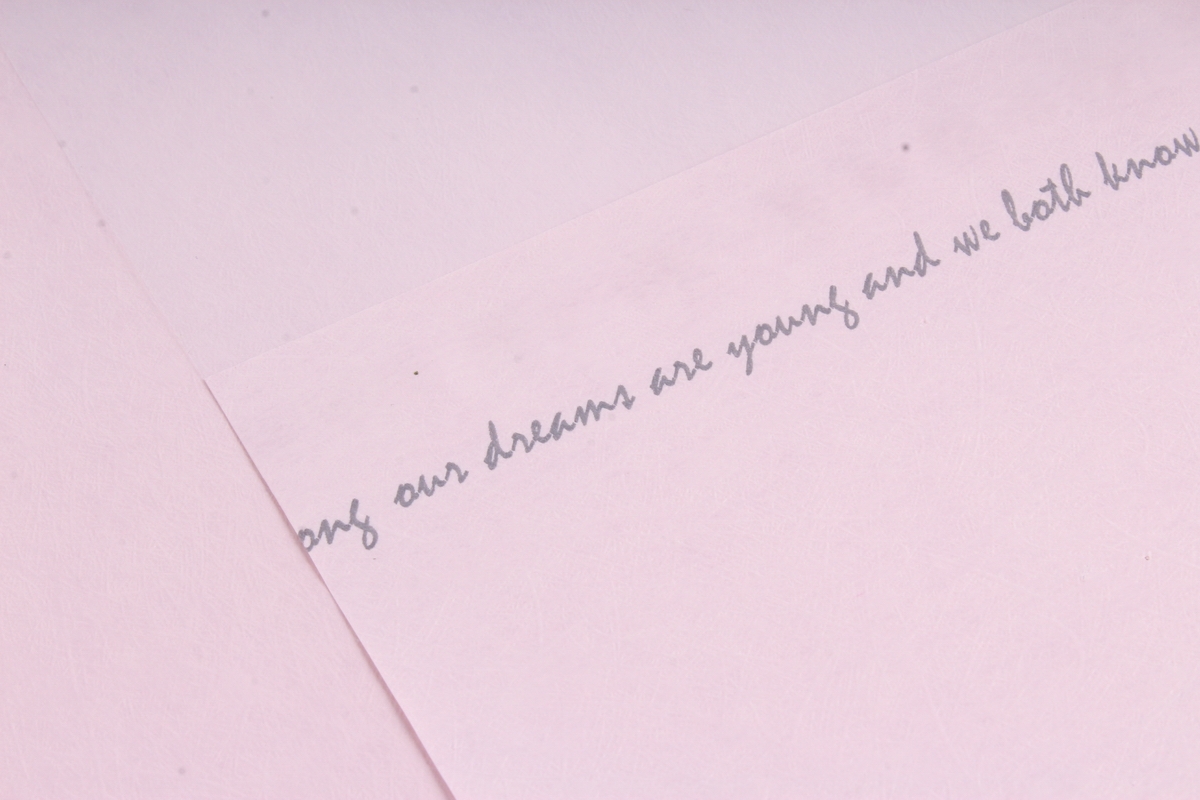 ong our dreams are young and we both know